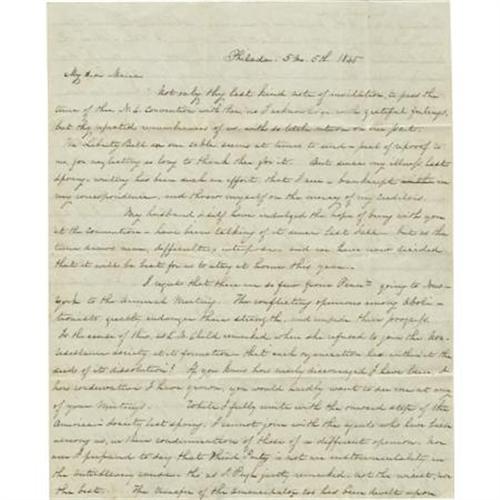 Philada. 5 Mo. 5th 1845
My dear Maria
Not only thy last kind note of invitation, to pass the
time of the N.E. Convention with thee, do I acknowledge with grateful feelings,
but thy repeated remembrances of us, with so little return on our part.
The Liberty Bell on our table seems at times to send a peal of reproof to
me, for neglecting so long to thank thee for it. But since my illness last
spring, writing has been such an effort, that I am a bankrupt
in my correspondence, and throw myself on the mercy of my creditors.
My husband & self have indulged the hope of being with you
at the Convention - have been talking of it since last Fall - but as the
time draws near, difficulties interpose, and we have now decided
that it will be best for us to stay at home this year.
I regret that there are so few from Penna. going to New-
York to the Annual Meeting. The conflicting opinions among Aboli-
tionists greatly endanger their strength, and impede their progress.
In the sense of this, as L. M. Child remarked, when she refused to join the Non-
Resistance Society at its formation - that each organization has within it the
seeds of its dissolution! If you knew how nearly discouraged I have been, &
how conservative I have grown, you would hardly want to see me at any
of your Meetings. While I fully unite with the onward step of the
American Society last spring, I cannot join with the agents who have been
among us, in their condemnation of those of a different opinion. Nor
am I prepared to say that Third Party is not an instrumentality in
the Anti Slavery cause - tho' as S Pugh justly remarked, not the wisest, nor
the best. The danger of the has been dwelt upon